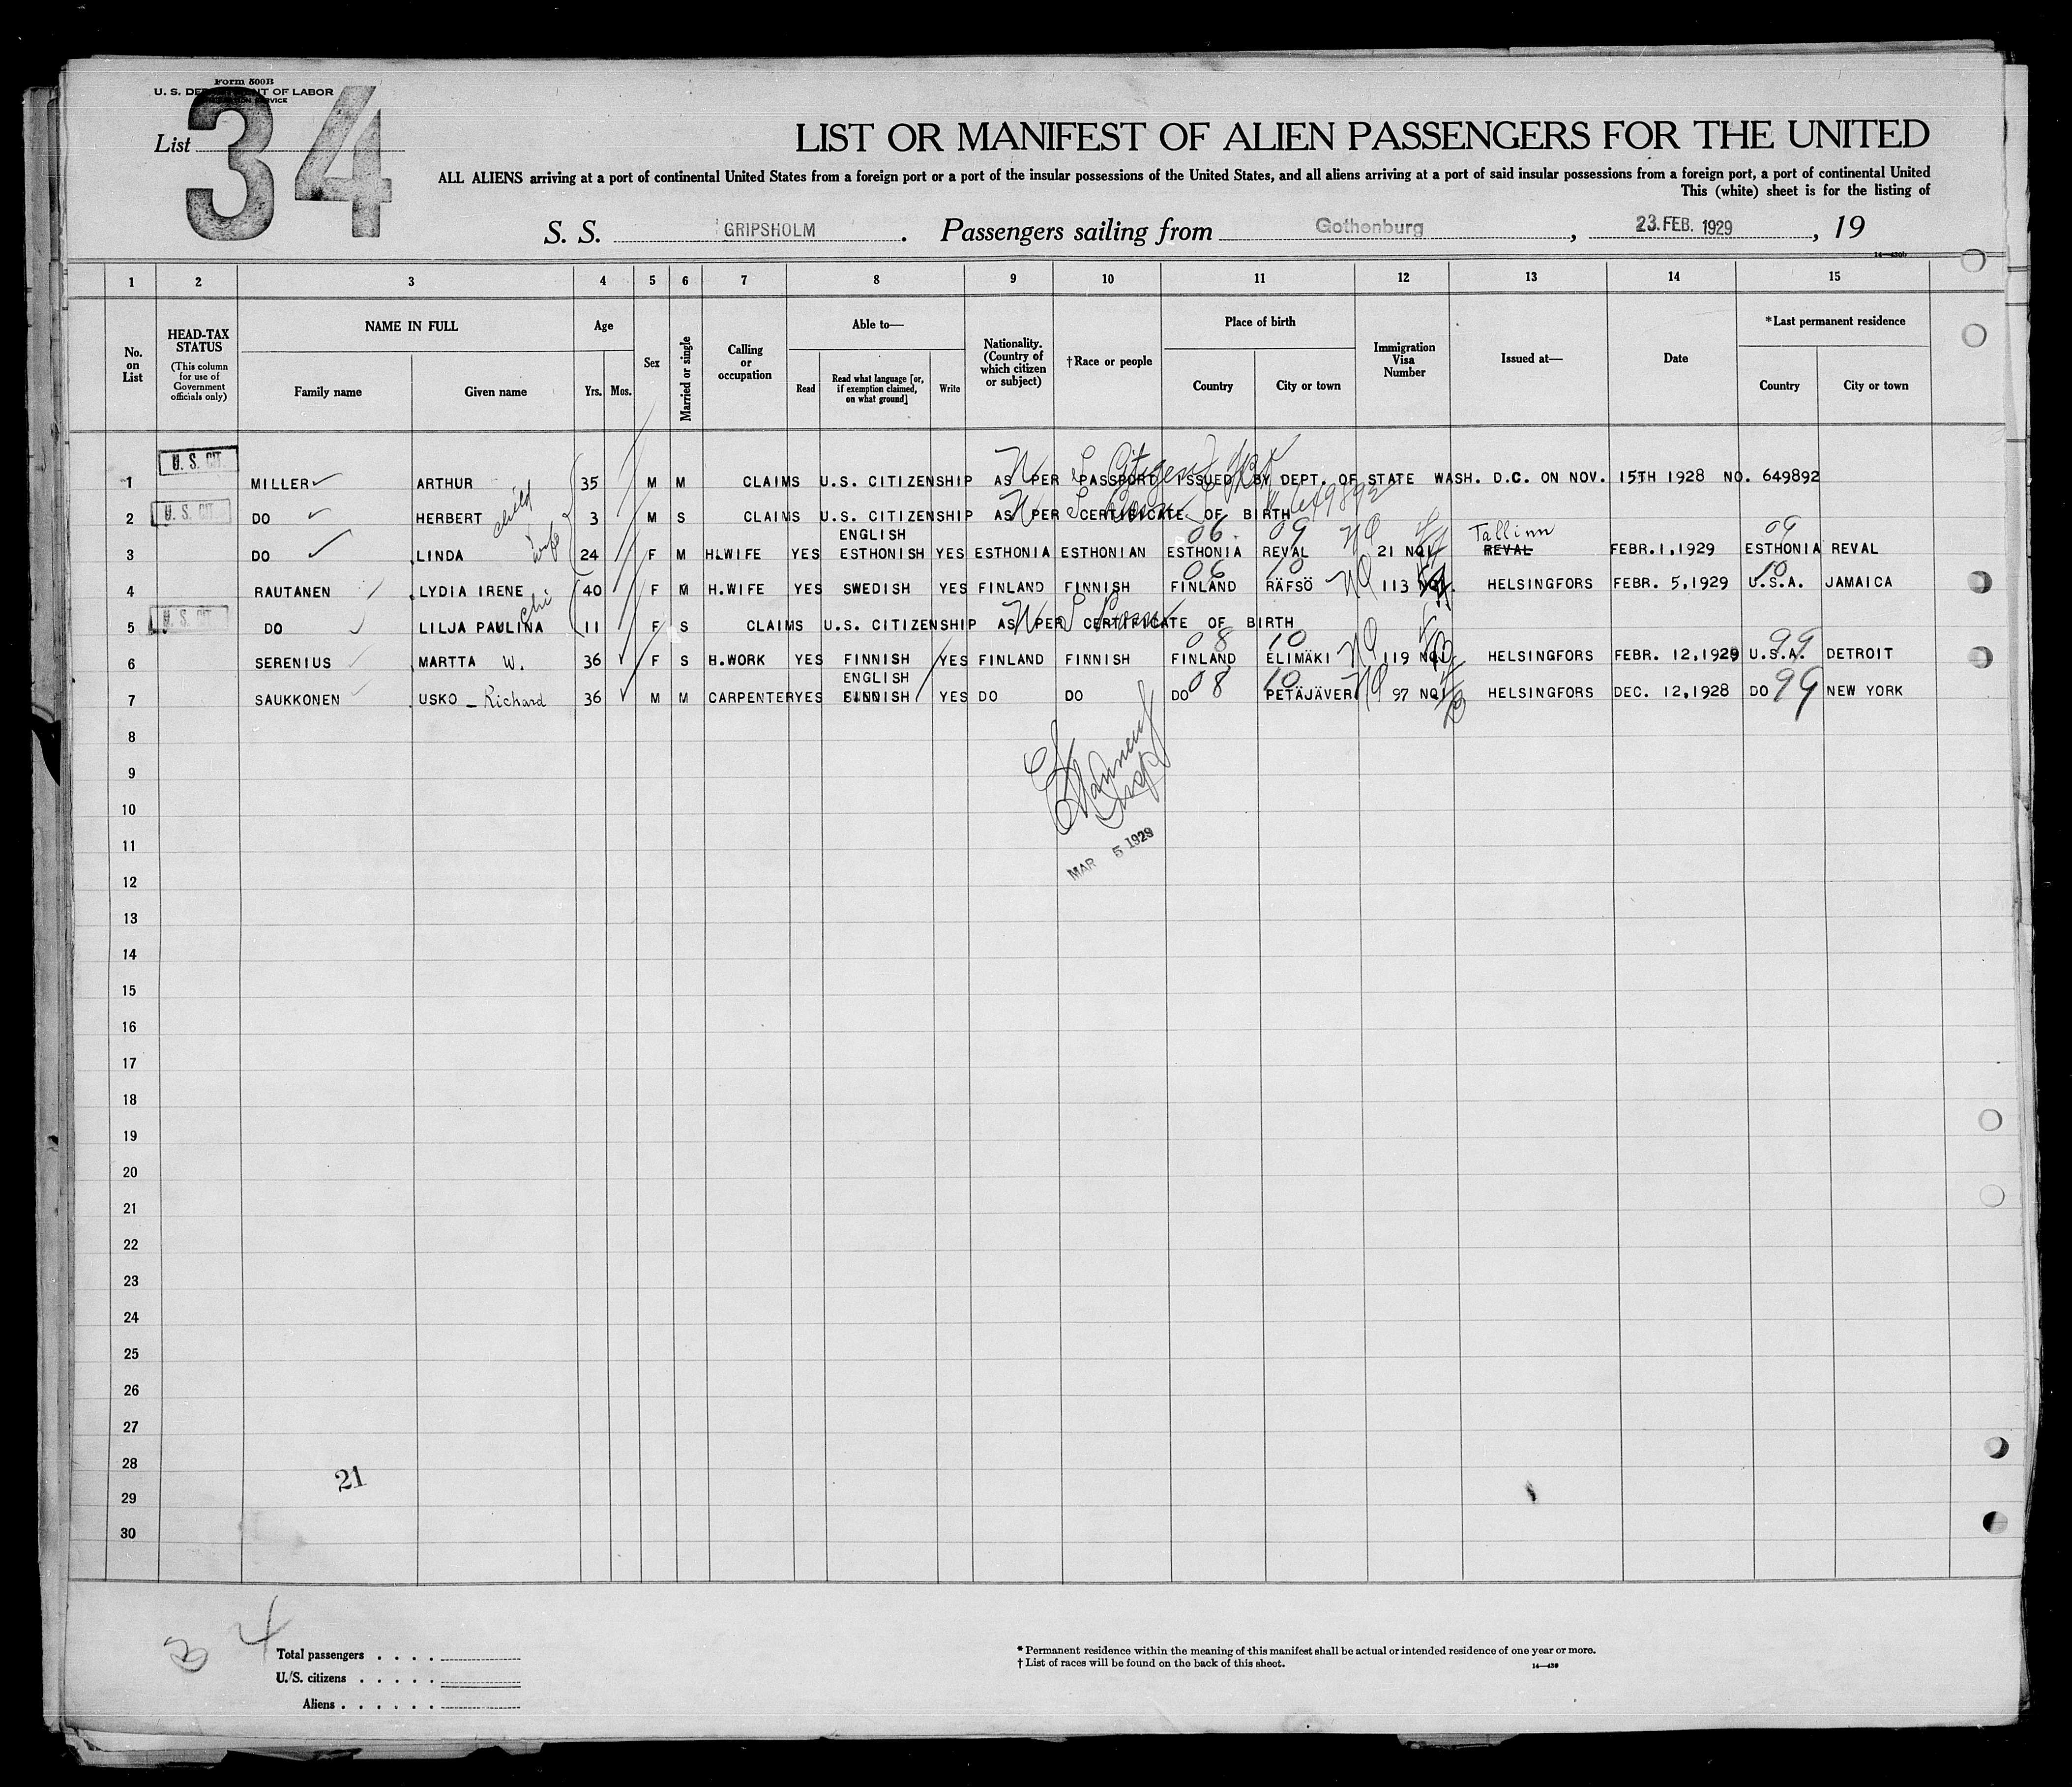 Form 500B
U. S. DEPARTMENT OF LABOR
List 34
LIST OR MANIFEST OF ALIEN PASSENGERS FOR THE UNITED
ALL ALIENS arriving at a port of continental United States from a foreign port or a port of the insular possessions of the United States, and all aliens arriving at a port of said insular possessions from a foreign port, a port of continental United
This (white) sheet is for the listing of
S. S. GRIPSHOLM. Passengers sailing from Gothenburg, 23. FEB. 1929, 19
14—430b
1 2 3 4 5 6 7 8 9 10 11 12 13 14 15
No. on List
HEAD-TAX STATUS (This column for use of Government officials only)
NAME IN FULL
Family name Given name
Age
Yrs. Mos.
Sex
Married or single
Calling or occupation
Able to—
Read Read what language [or, if exemption claimed, on what ground] Write
Nationality. (Country of which citizen or subject)
†Race or people
Place of birth
Country City or town
Immigration Visa Number
Issued at—
Date
*Last permanent residence
Country City or town
U. S. CIT.
1 MILLER ARTHUR 35 M M CLAIMS U.S. CITIZENSHIP AS PER PASSPORT ISSUED BY DEPT. OF STATE WASH. D.C. ON NOV. 15TH 1928 NO. 649892
U. S. CIT.
2 DO HERBERT child 3 M S CLAIMS U.S. CITIZENSHIP AS PER CERTIFICATE OF BIRTH
ENGLISH 06. 09 Tallinn 09
3 DO LINDA wife 24 F M H.WIFE YES ESTHONISH YES ESTHONIA ESTHONIAN ESTHONIA REVAL 21 REVAL FEBR.1,1929 ESTHONIA REVAL
06 10 10
4 RAUTANEN LYDIA IRENE 40 F M H.WIFE YES SWEDISH YES FINLAND FINNISH FINLAND RÄFSÖ 113 HELSINGFORS FEBR. 5,1929 U.S.A. JAMAICA
U. S. CIT.
5 DO LILJA PAULINA 11 F S CLAIMS U.S. CITIZENSHIP AS PER CERTIFICATE OF BIRTH
08 10 99
6 SERENIUS MARTTA W. 36 F S H.WORK YES FINNISH YES FINLAND FINNISH FINLAND ELIMÄKI 119 HELSINGFORS FEBR. 12,1929 U.S.A. DETROIT
ENGLISH 08 10 99
7 SAUKKONEN USKO - Richard 36 M M CARPENTER YES FINNISH YES DO DO DO PETÄJÄVER 97 HELSINGFORS DEC. 12,1928 DO NEW YORK
8
9
10
11
MAR 5 1929
12
13
14
15
16
17
18
19
20
21
22
23
24
25
26
27
28
21
29
30
34
Total passengers
U. S. citizens
Aliens
* Permanent residence within the meaning of this manifest shall be actual or intended residence of one year or more.
† List of races will be found on the back of this sheet.
14—430